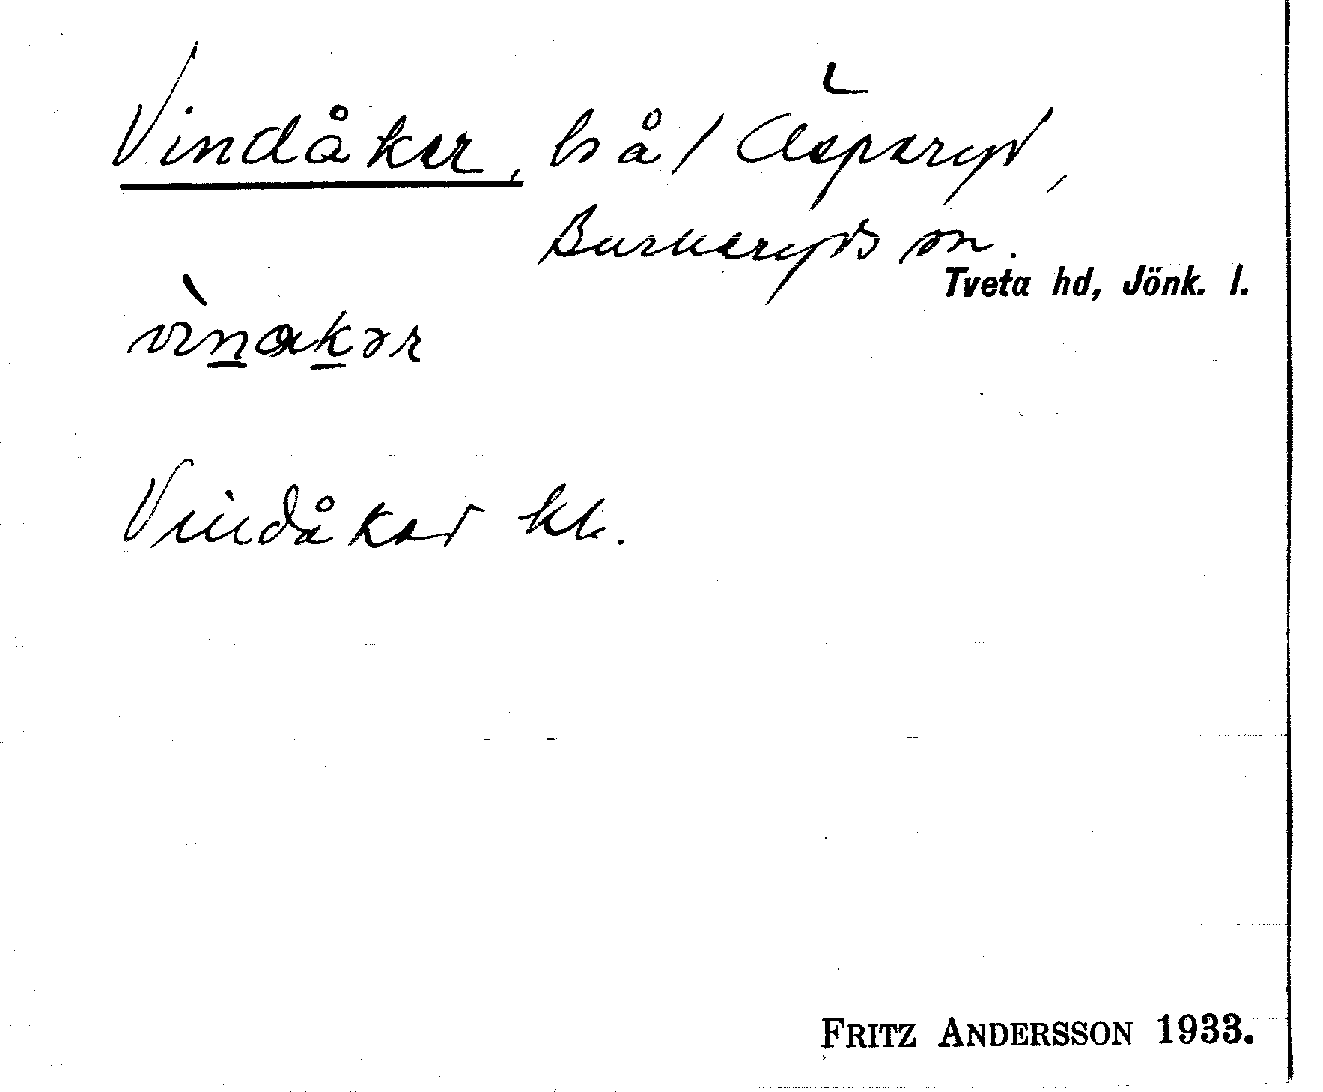 Vindåker, bå / Äsperyd,
Barkeryds sn.
Tveta hd, Jönk. l.
vìnakər
Vindåker kb.
FRITZ ANDERSSON 1933.